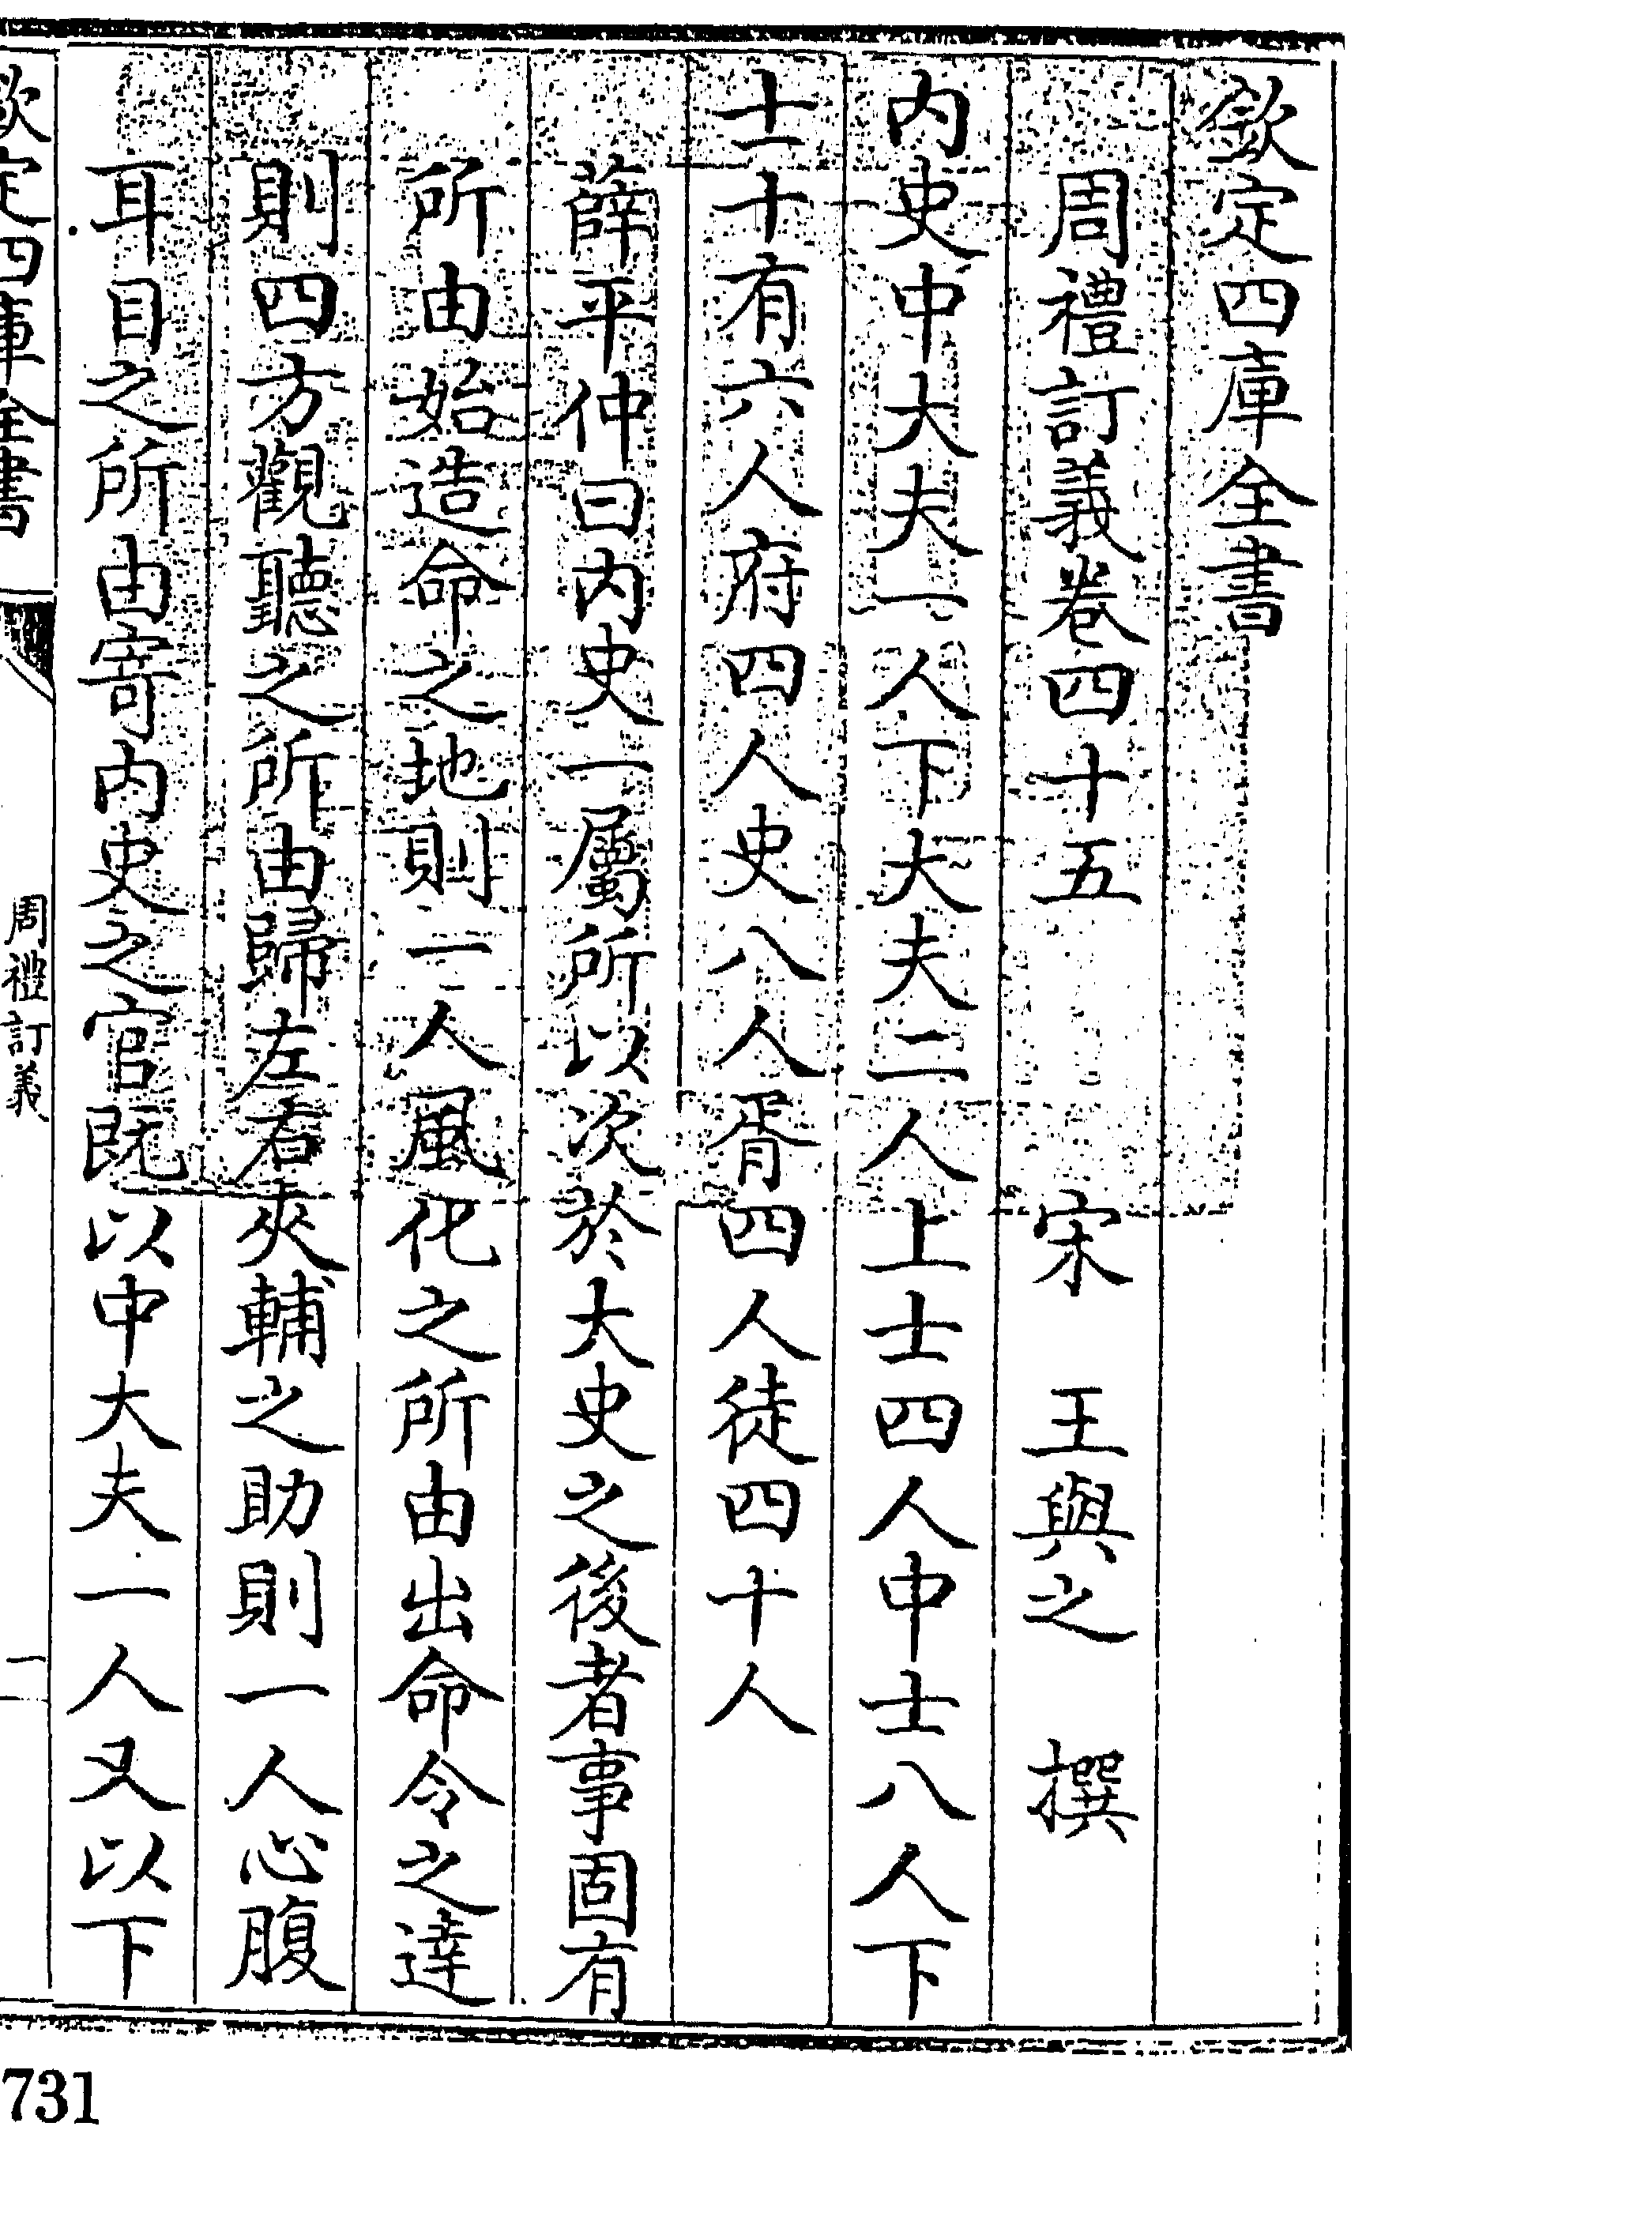 欽定四庫全書
周禮訂義卷四十五　宋　王與之　撰
内史中大夫一人下大夫二人上士四人中士八人下
士十有六人府四人史八人胥四人徒四十人
薛平仲曰内史一屬所以次於大史之後者事固有
所由始造命之地則一人風化之所由出命令之達
則四方觀聽之所由歸左右夾輔之助則一人心腹
耳目之所由寄内史之官既以中大夫一人又以下
欽定四庫全書
周禮訂義
一
731